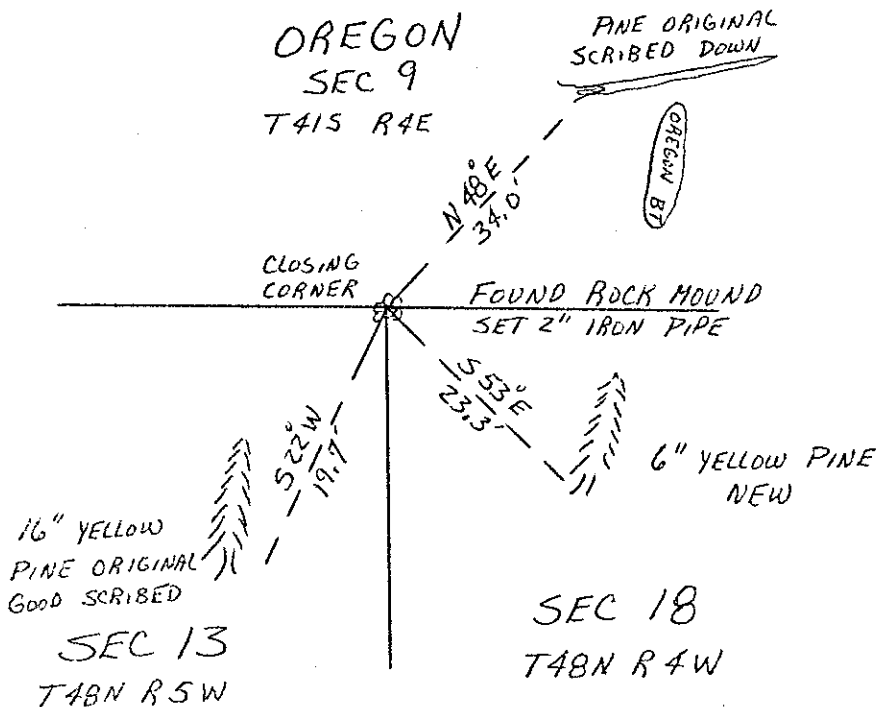 OREGON
SEC 9
T41S R4E
PINE ORIGINAL
SCRIBED DOWN
OREGON BT
N 48° E
34.0'
CLOSING
CORNER
FOUND ROCK MOUND
SET 2" IRON PIPE
S 53° E
23.3'
S 22° W
19.7'
6" YELLOW PINE
NEW
16" YELLOW
PINE ORIGINAL
GOOD SCRIBED
SEC 13
T48N R5W
SEC 18
T48N R4W